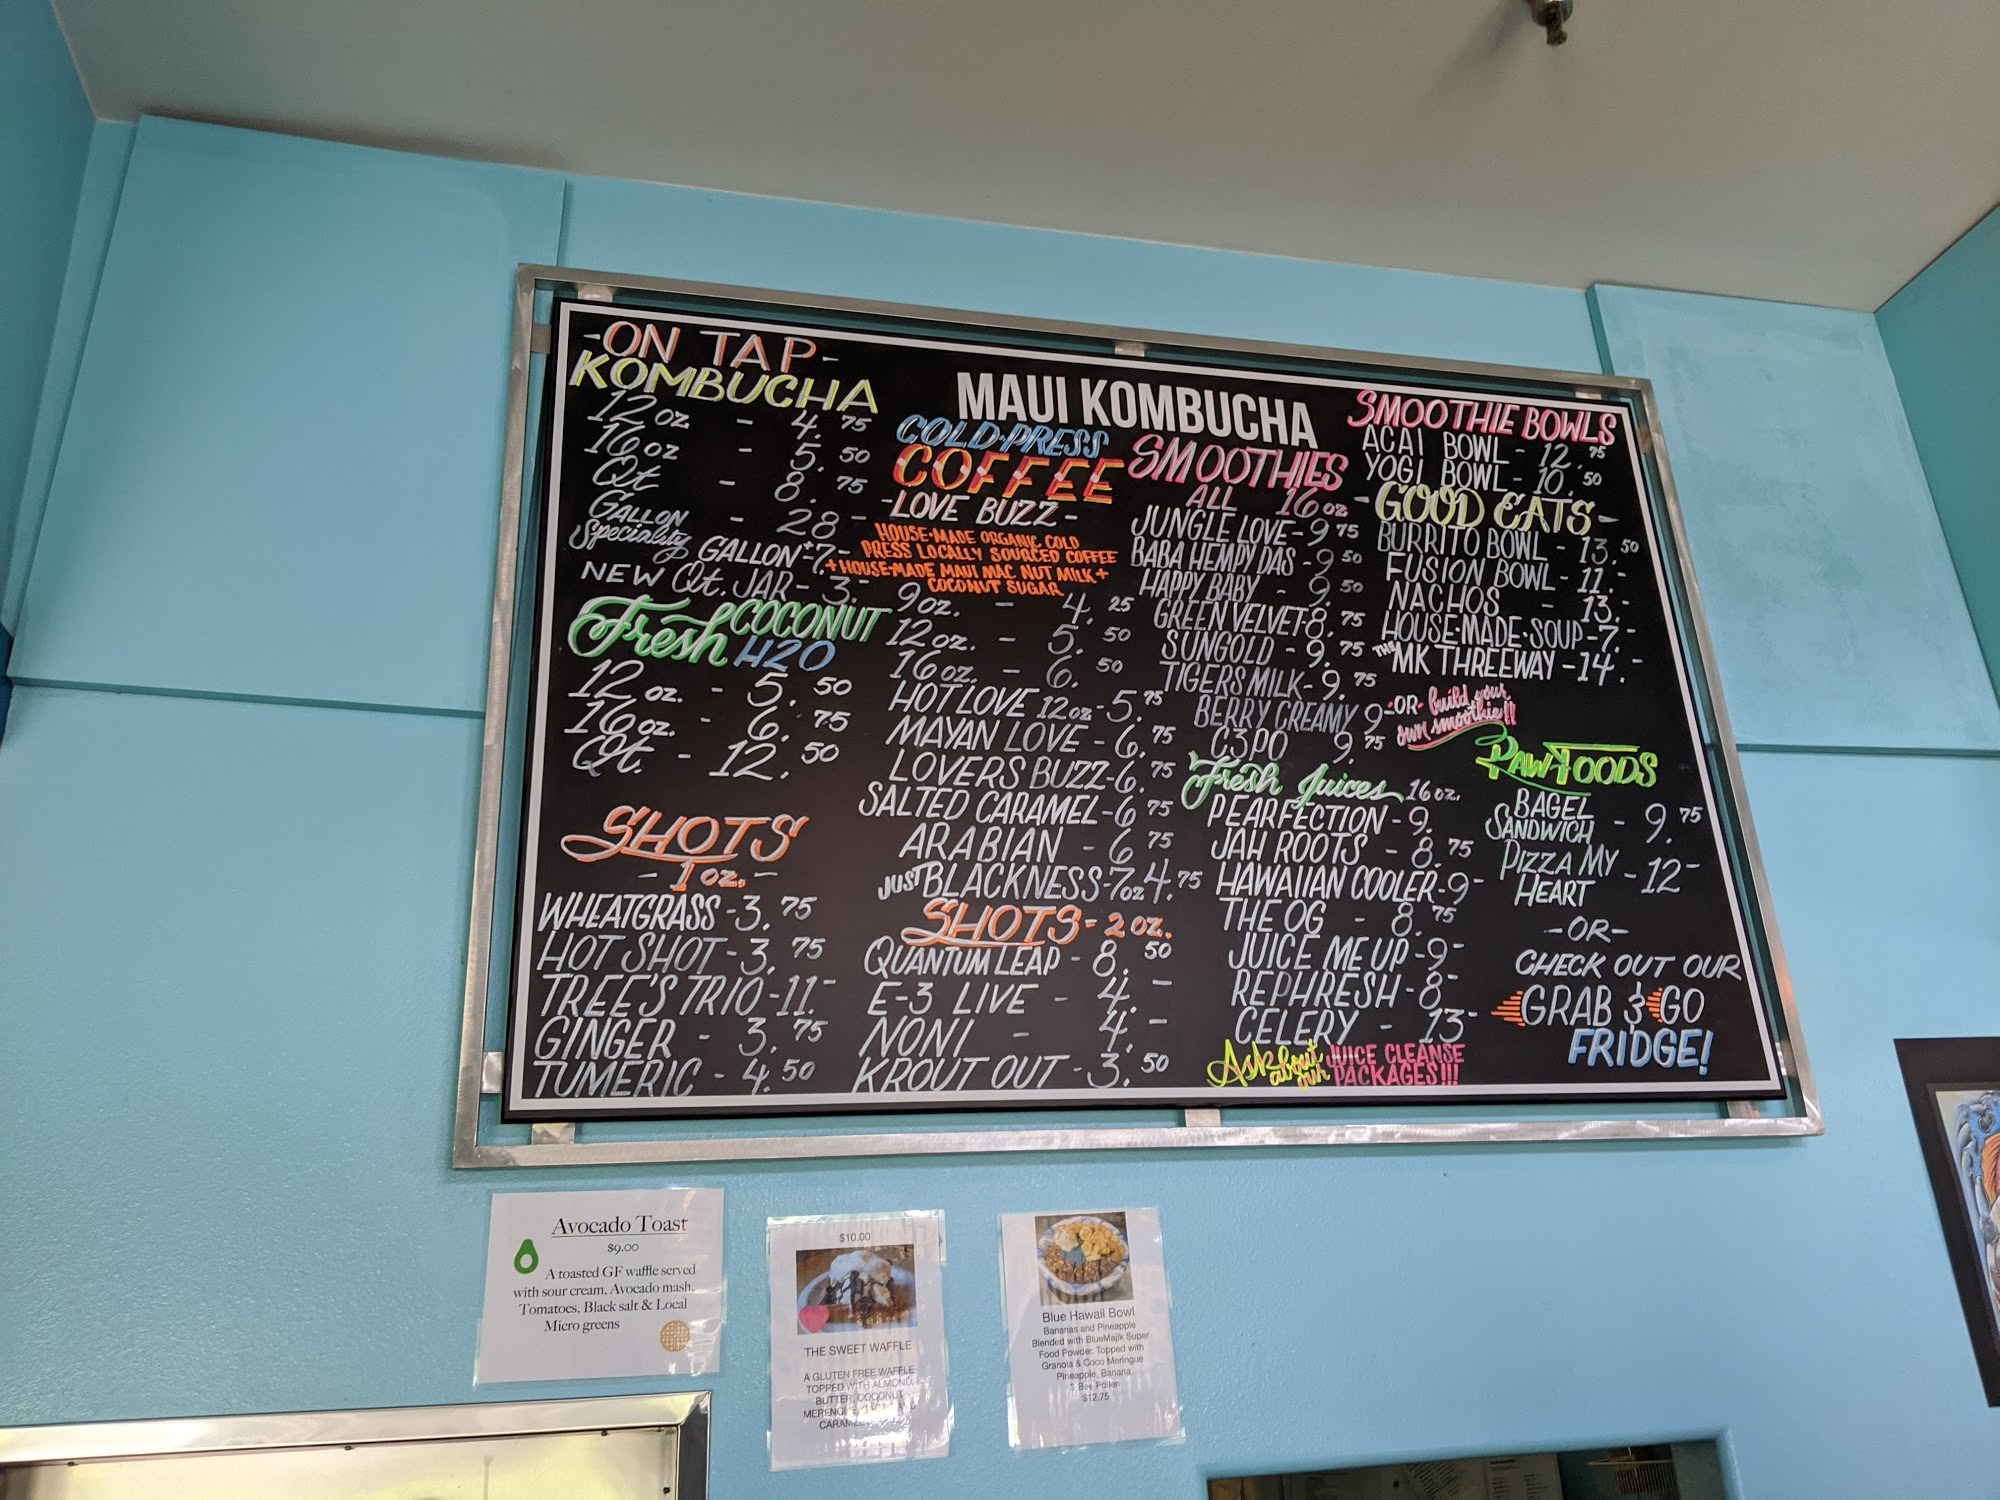 -ON TAP-
KOMBUCHA
12 oz - 4.75
16 oz - 5.50
Qt - 8.75
GALLON - 28-
Speciality GALLON-+7.-
NEW Qt. JAR- 3.-
Fresh COCONUT
H2O
12 oz. - 5.50
16 oz. - 6.75
Qt. - 12.50
SHOTS
- 1 oz. -
WHEATGRASS-3.75
HOT SHOT-3.75
TREE'S TRIO-11.-
GINGER - 3.75
TUMERIC - 4.50
MAUI KOMBUCHA
COLD-PRESS
COFFEE
-LOVE BUZZ-
HOUSE-MADE ORGANIC COLD
PRESS LOCALLY SOURCED COFFEE
+HOUSE-MADE MAUI MAC NUT MILK+
COCONUT SUGAR
9 oz. - 4.25
12 oz. - 5.50
16 oz. - 6.50
HOT LOVE 12 oz-5.75
MAYAN LOVE - 6.75
LOVERS BUZZ-6.75
SALTED CARAMEL-6 75
ARABIAN - 6 75
JUST BLACKNESS-7oz 4.75
SHOTS-2 oz.
QUANTUM LEAP - 8.50
E-3 LIVE - 4.-
NONI - 4.-
KROUT OUT - 3.50
SMOOTHIES
ALL 16 oz
JUNGLE LOVE-9 75
BABA HEMPY DAS -9 50
HAPPY BABY - 9.50
GREEN VELVET-8.75
SUNGOLD - 9.75
TIGERS MILK-9.75
BERRY CREAMY 9-
C3PO 9.75
-OR- build your
own smoothie!!
Fresh Juices 16 oz.
PEARFECTION - 9.
JAH ROOTS - 8.75
HAWAIIAN COOLER-9-
THE OG - 8.75
JUICE ME UP-9-
REPHRESH-8-
CELERY - 13-
Ask about our JUICE CLEANSE
PACKAGES!!!
SMOOTHIE BOWLS
ACAI BOWL - 12.75
YOGI BOWL - 10.50
-GOOD EATS-
BURRITO BOWL - 13.50
FUSION BOWL - 11.-
NACHOS - 13.-
HOUSE-MADE-SOUP-7.-
THE MK THREEWAY -14.-
PAW FOODS
BAGEL
SANDWICH - 9.75
PIZZA MY
HEART - 12-
-OR-
CHECK OUT OUR
GRAB & GO
FRIDGE!
Avocado Toast
$9.00
A toasted GF waffle served
with sour cream, Avocado mash,
Tomatoes, Black salt & Local
Micro greens
$10.00
THE SWEET WAFFLE
A GLUTEN FREE WAFFLE
TOPPED WITH ALMOND
BUTTER, COCONUT
Blue Hawaii Bowl
Bananas and Pineapple
Blended with BlueMajik Super
Food Powder. Topped with
Granola & Coco Meringue
Pineapple, Banana
& Bee Pollen
$12.75